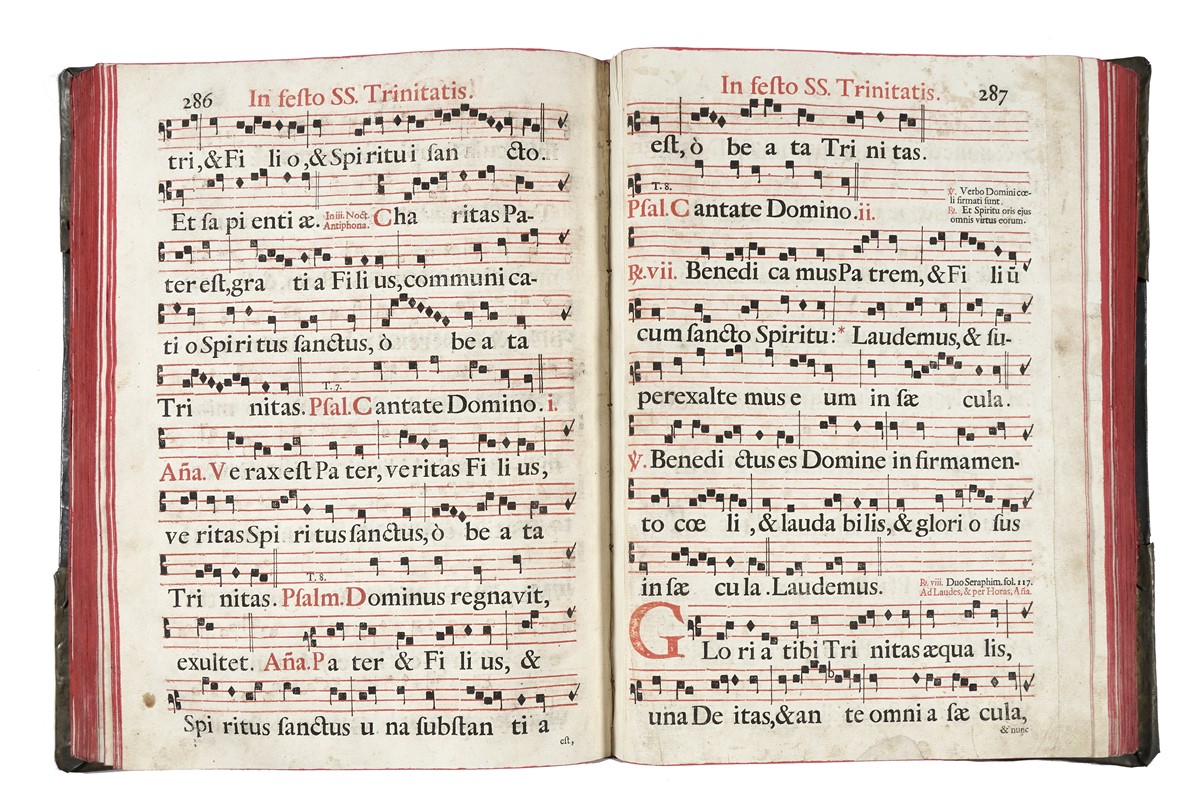 286 In festo SS. Trinitatis.
tri, & Fi li o, & Spiritu i san cto.
Et sa pi enti æ. In iii. Noct. Antiphona. Cha ritas Pa-
ter est, gra ti a Fi li us, communi ca-
ti o Spiri tus sanctus, ò be a ta
T. 7.
Tri nitas. Psal. Cantate Domino. i.
Aña. Ve rax est Pa ter, ve ritas Fi li us,
ve ritas Spi ri tus sanctus, ò be a ta
T. 8.
Tri nitas. Psalm. Dominus regnavit,
exultet. Aña. Pa ter & Fi li us, &
Spi ritus sanctus u na substan ti a
est,
In festo SS. Trinitatis. 287
est, ò be a ta Tri ni tas.
T. 8.
Psal. Cantate Domino. ii.
℣. Verbo Domini cœ-
li firmati sunt.
℟. Et Spiritu oris ejus
omnis virtus eorum.
℟. vii. Benedi ca mus Pa trem, & Fi li ũ
cum sancto Spiritu: * Laudemus, & su-
perexalte mus e um in sæ cula.
℣. Benedi ctus es Domine in firmamen-
to cœ li, & lauda bilis, & glori o sus
in sæ cu la. Laudemus.
℟. viii. Duo Seraphim. fol. 117.
Ad Laudes, & per Horas, Aña.
GLo ri a tibi Tri nitas æqua lis,
una De itas, & an te omni a sæ cula,
& nunc